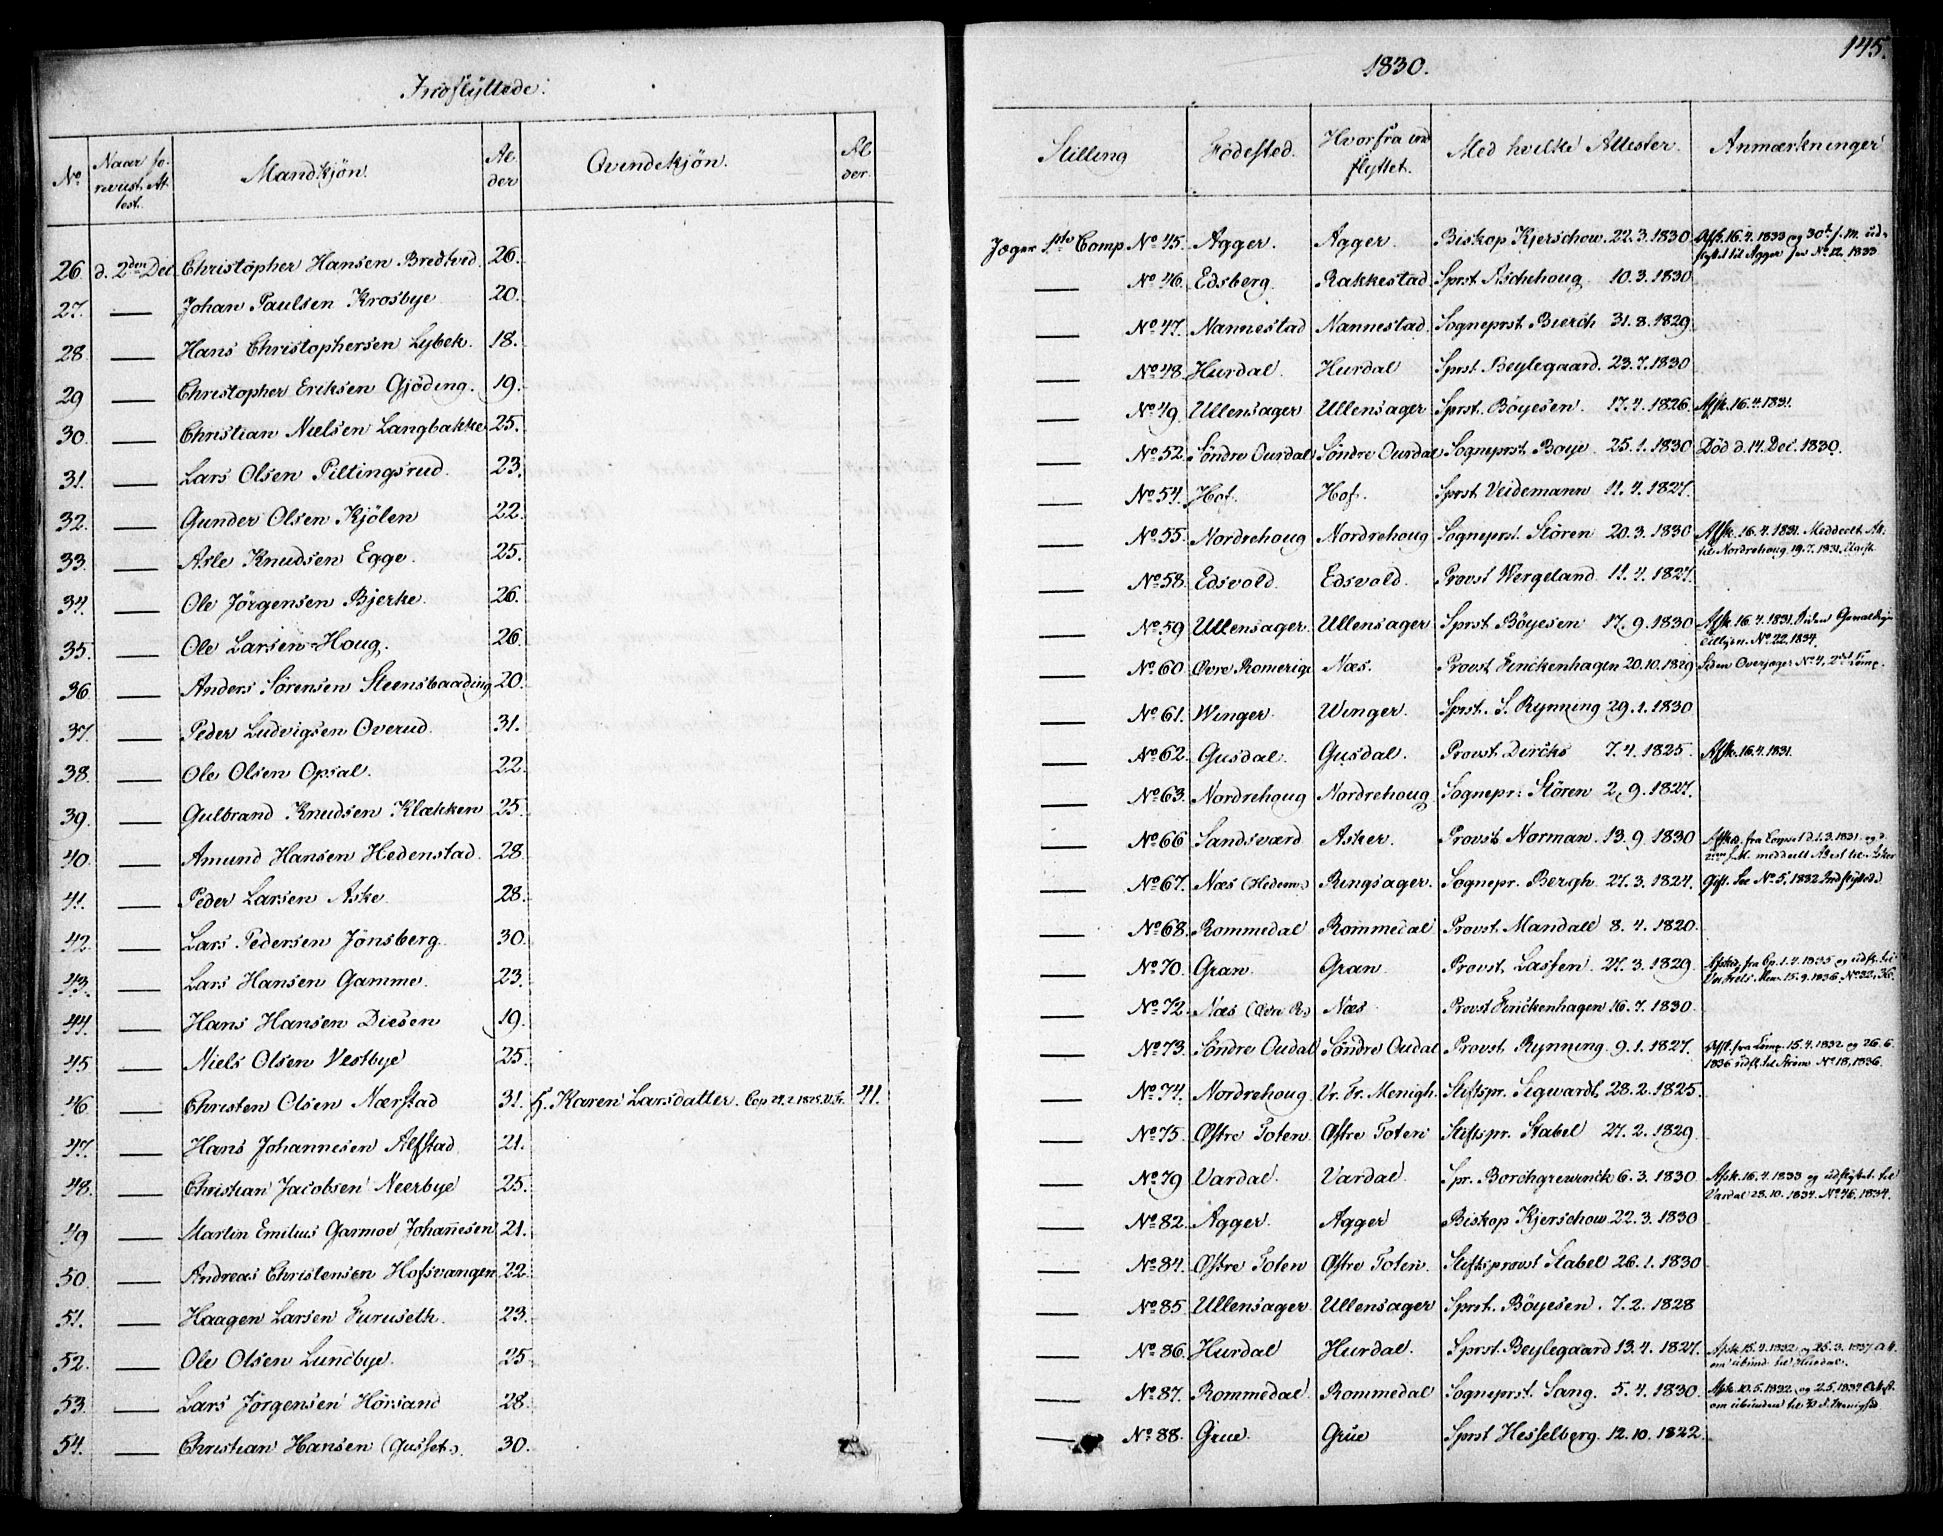 Indflyttede.
No
Naar fo-
revist At-
test.
Mandkjøn.
Al-
der
Qvindekjøn.
Al-
der.
26. d. 2den Dec. Christopher Hansen Bredtved. 26.
27. — Johan Paulsen Krosbye 20.
28 — Hans Christophersen Lybek. 18.
29 — Christopher Eriksen Gjöding. 19.
30. — Christian Nielsen Langbakke 25.
31. — Lars Olsen Piltingsrud. 23.
32. — Gunder Olsen Kjölen 22.
33. — Asle Knudsen Egge. 25.
34. — Ole Jörgensen Bjerke. 26.
35. — Ole Larsen Houg. 26.
36 — Anders Sörensen Steensbaading 20.
37. — Peder Ludvigsen Overud. 31.
38. — Ole Olsen Opsal. 22.
39. — Gulbrand Knudsen Klækken 25.
40. — Amund Hansen Hedenstad. 28
41. — Peder Larsen Aske. 28.
42. — Lars Pedersen Jönsberg. 30.
43. — Lars Hansen Gamme. 23.
44. — Hans Hansen Diesen 19.
45 — Niels Olsen Vestbye 25.
46. — Christen Olsen Nærstad 31. H. Karen Larsdatter. Cop 27.2.1825. 41.
47. — Hans Johannesen Alfstad 21.
48. — Christian Jacobsen Neerbye 25.
49 — Martin Emilius Garmoe Johannesen 21.
50. — Andreas Christensen Hofsvangen 22.
51. — Haagen Larsen Furuseth. 23.
52. — Ole Olsen Lundbye. 25.
53. — Lars Jörgensen Hörsand 28.
54. — Christian Hansen (Gusset.) 30.
145.
1830.
Stilling
Fødested.
Hvorfra ind-
flyttet.
Med hvilke Attester.
Anmærkninger
Jæger 1ste Comp No 45. Agger. Agger. Biskop Kjerschow. 22.3.1830 Afsk. 16.4.1833 og 30te s. M. ud-
flyttet til Agger see No 12, 1833
— No 46. Edsberg. Rakkestad. Sprst Aschehoug 10.3.1830
— No 47. Nannestad Nannestad. Sogneprst Bierch 31.8.1829
— No 48. Hurdal. Hurdal Sprst Beylegaard. 23.7.1830
— No 49. Ullensager Ullensager Sprst. Böyesen. 17.4.1826. Afsk. 16.4.1831.
— No 52. Söndre Ourdal Söndre Ourdal Sogneprst Boye 25.1.1830 Död d. 14 Dec. 1830.
— No 54. Hof. Hof. Sprst Veidemann 11.4.1827.
— No 55. Nordrehoug Nordrehoug Sogneprst. Stören 20.3.1830 Afsk. 16.4.1831. Meddeelt At.
til Nordrehoug 19.7.1831. Ugift
— No 58. Edsvold. Edsvold. Provst Wergeland 11.4.1827.
— No 59 Ullensager. Ullensager Sprst Böyesen 17.9.1830 Afsk. 16.4.1831. Siden
No 22, 1834.
— No 60. Övre Romerige Næs. Provst Finckenhagen 20.10.1829 Siden Overjæger No 4, 2det Comp.
— No 61. Winger. Winger. Sprst. S. Rynning 29.1.1830
— No 62. Gusdal. Gusdal. Provst Dircks 7.4.1825. Afsk. 16.4.1831.
— No 63. Nordrehoug Nordrehoug Sognepr. Stören 2.9.1827.
— No 66 Sandsværd Asker. Provst Norman. 13.9.1830 Afsked fra Corpset d. 1.3.1831. og d.
2den s. M. meddeelt Attest til Asker
— No 67. Næs (Hedem.) Ringsager. Sognepr. Bergh. 27.3.1827. Gift. See No 5, 1832 Indflyttede
— No 68. Rommedal Rommedal Provst. Mandall 8.4.1820.
— No 70. Gran. Gran. Provst Lassen. 27.3.1829 Afsked fra Cp. 1.4.1835 og udfl. til
Vor Frels. Men. 15.9.1836. No 32, 36.
— No 72. Næs (Övre R.) Næs. Provst Finckenhagen 16.7.1830.
— No 73. Söndre Oudal Söndre Oudal Provst Rynning 9.1.1827. Afsk. fra Comp. 15.4.1832 og 26.6.
1836 udfl. til Ström No 18, 1836.
— No 74. Nordrehoug. Vr. Fr. Menigh. Stiftspr. Sigwardt. 28.2.1825.
— No 75. Østre Toten. Østre Toten Stiftspr. Stabel 27.2.1829.
— No 79 Vardal. Vardal. Spr. Borchgrewinck 6.3.1830. Afsk. 16.4.1833 og udflyttet til
Vardal 28.10.1834. No 46, 1834.
— No 82. Agger. Agger Biskop Kjerschow. 22.3.1830
— No 84. Østre Toten Østre Toten. Stiftsprovst Stabel 26.1.1830
— No 85 Ullensager Ullensager Sprst. Böyesen. 7.2.1828
— No 86. Hurdal Hurdal. Sprst. Beylegaard 13.4.1827. Afsk. 15.4.1832 og 25.3.1837 Att.
om ubund. til Hurdal.
— No 87. Rommedal. Rommedal Sogneprst. Sang. 5.4.1830. Afsk. 10.5.1832 og 2.5.1834 Attest.
om ubunden til
— No 88. Grue. Grue Sprst Hesselberg. 12.10.1822.